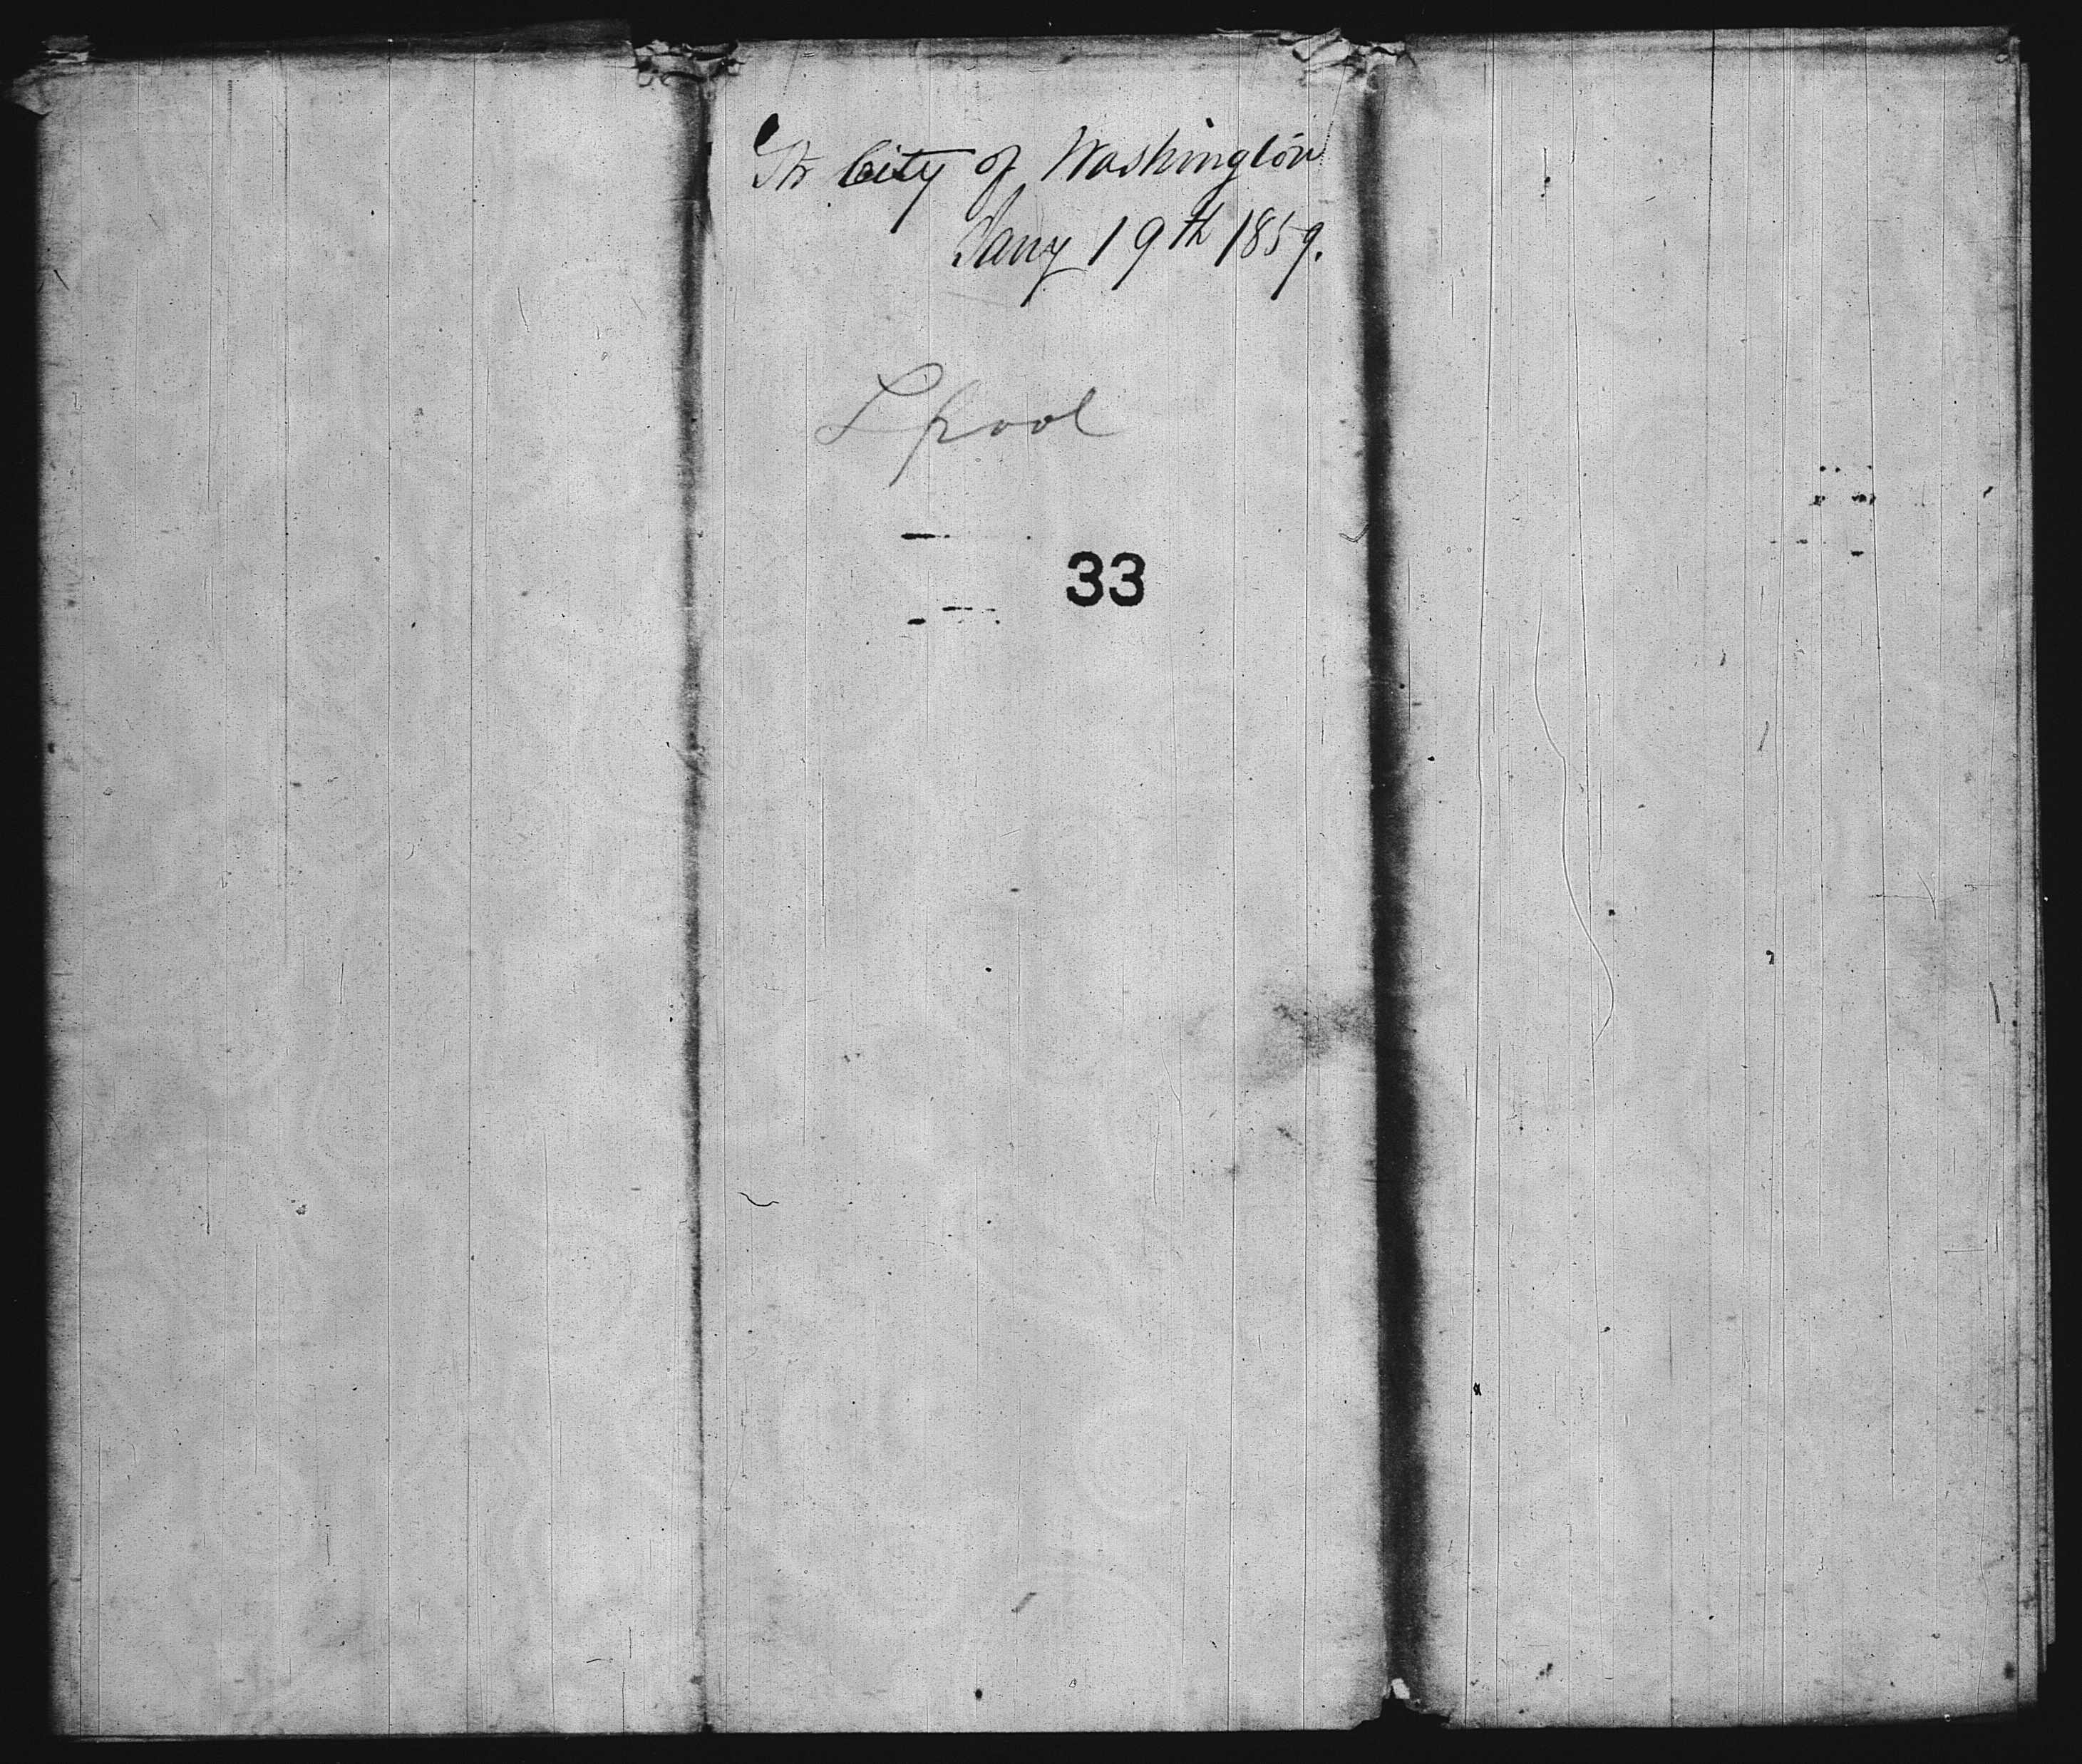 Str City of Washington
Jany 19th 1859.
L pool
33